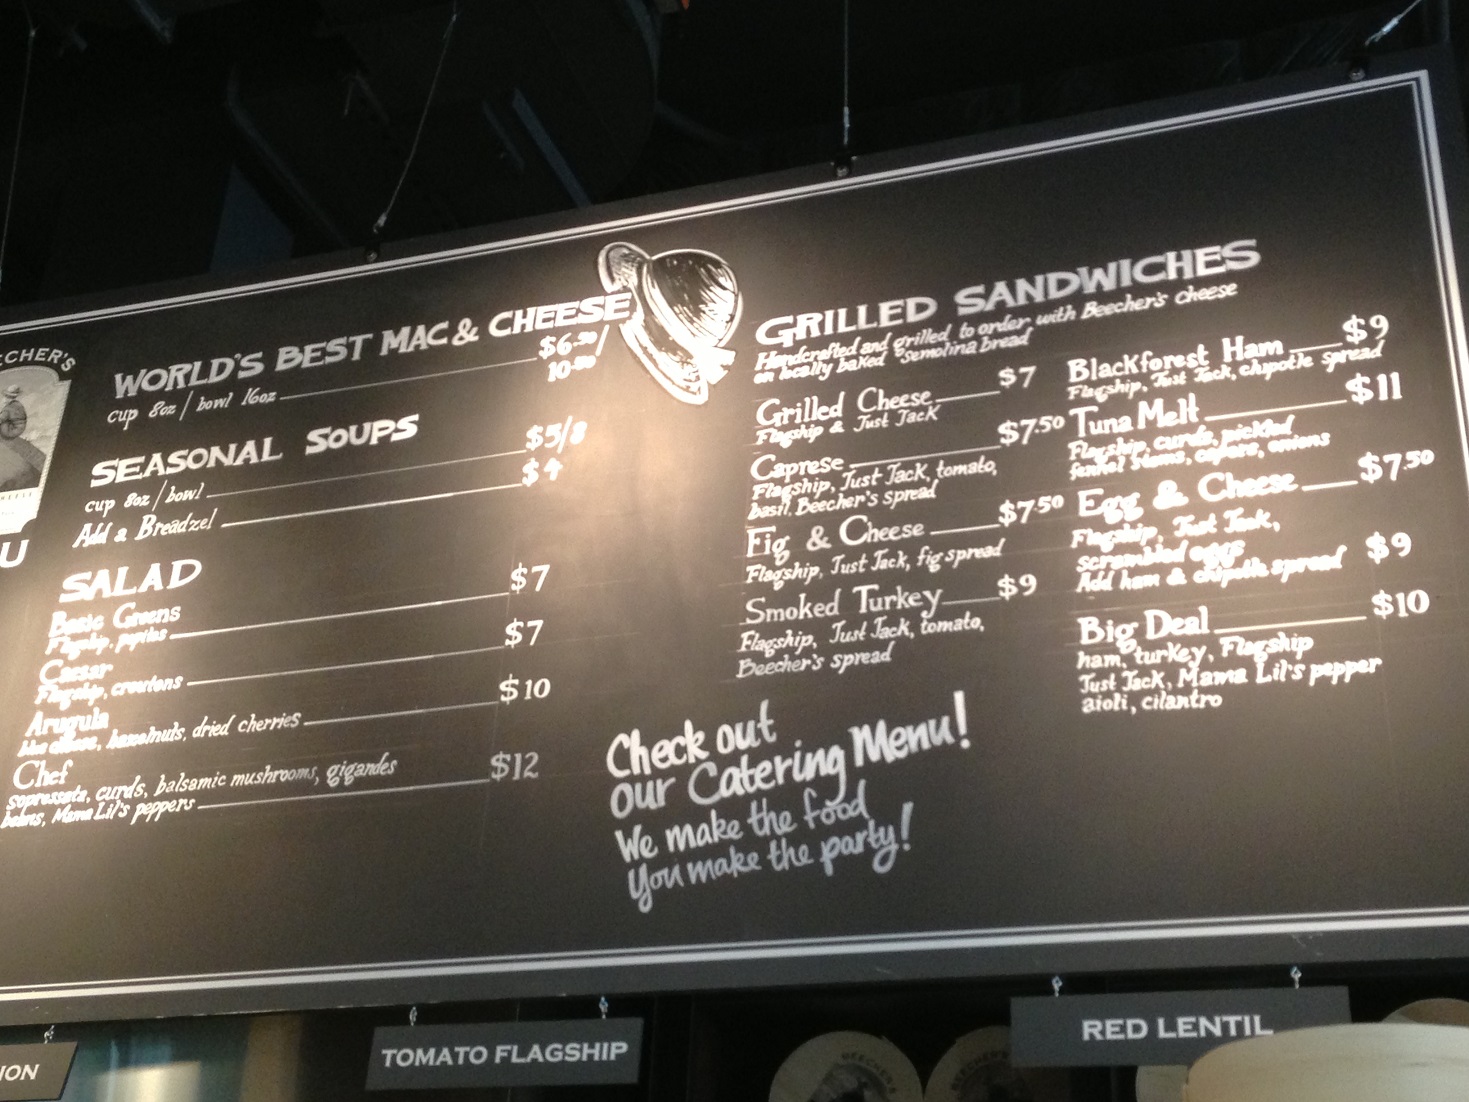 ECHER'S
U
WORLD'S BEST MAC & CHEESE
cup 8oz / bowl 16oz $6.50/
10.50
SEASONAL SOUPS
cup 8oz / bowl $5/8
Add a Breadzel $4
SALAD
Basic Greens $7
Flagship, pepitas
Caesar $7
Flagship, croutons
Arugula $10
blue cheese, hazelnuts, dried cherries
Chef $12
sopressata, curds, balsamic mushrooms, gigandes
beans, Mama Lil's peppers
GRILLED SANDWICHES
Handcrafted and grilled to order with Beecher's cheese
on locally baked semolina bread
Grilled Cheese $7
Flagship & Just Jack
Caprese $7.50
Flagship, Just Jack, tomato,
basil, Beecher's spread
Fig & Cheese $7.50
Flagship, Just Jack, fig spread
Smoked Turkey $9
Flagship, Just Jack, tomato,
Beecher's spread
Blackforest Ham $9
Flagship, Just Jack, chipotle spread
Tuna Melt $11
Flagship, curds, pickled
fennel stems, capers, onions
Egg & Cheese $7.50
Flagship, Just Jack,
scrambled eggs
Add ham & chipotle spread $9
Big Deal $10
ham, turkey, Flagship
Just Jack, Mama Lil's pepper
aioli, cilantro
Check out
our Catering Menu!
We make the food
You make the party!
ION
TOMATO FLAGSHIP
RED LENTIL
BEECHER'S
BEECHER'S